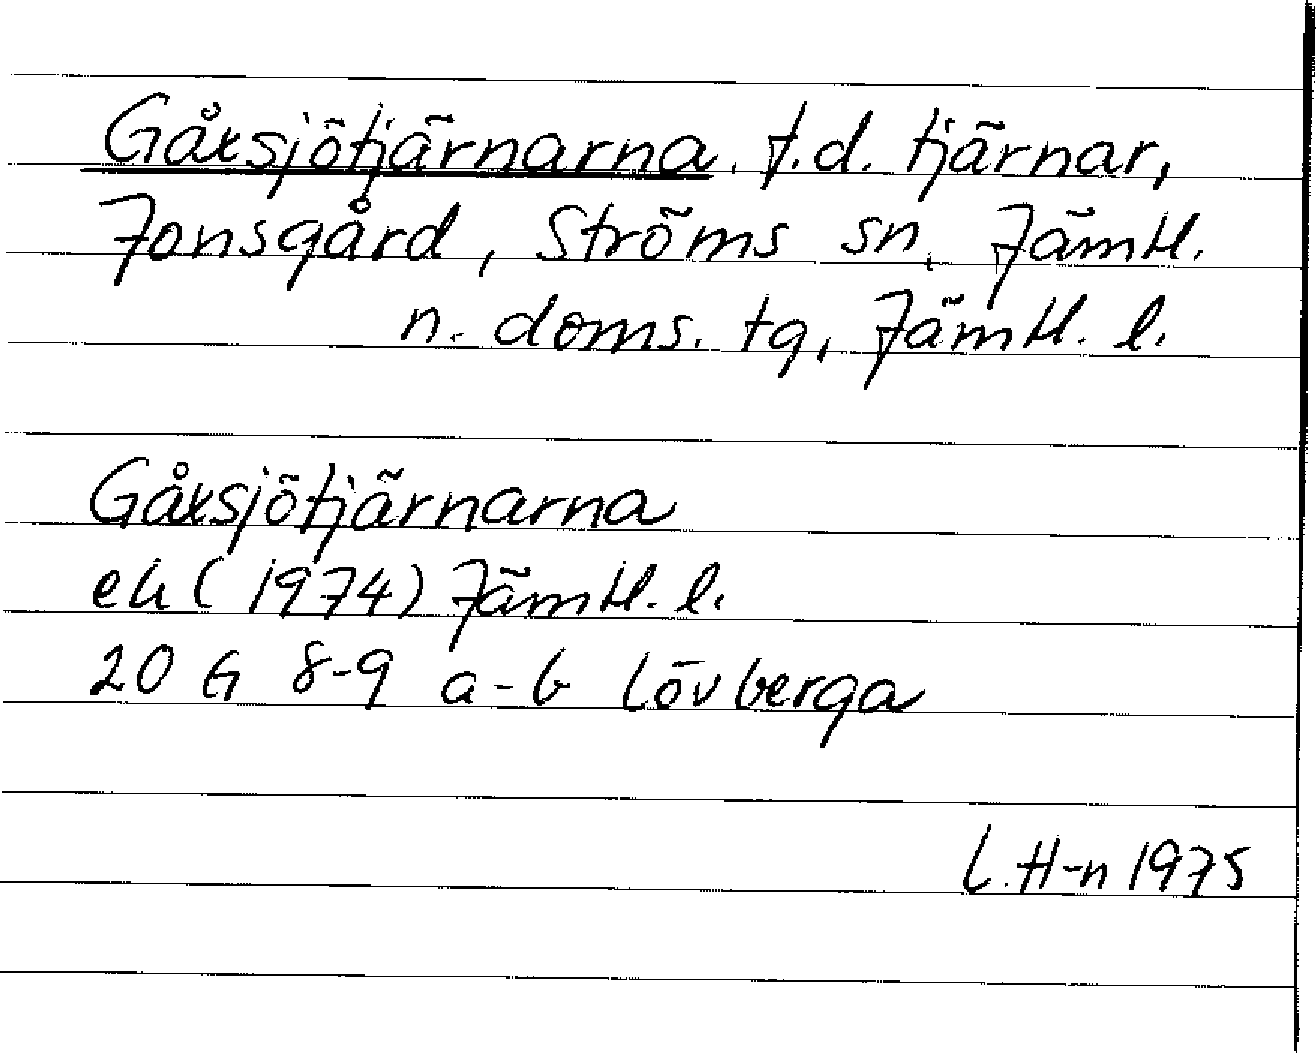 Gåxsjötjärnarna. f.d. tjärnar,
Jonsgård, Ströms sn, Jämtl.
n. doms. tg, Jämtl. l.
Gåxsjötjärnarna
ek (1974) Jämtl. l.
20 G 8-9 a-b Lövberga
L. H-n 1975